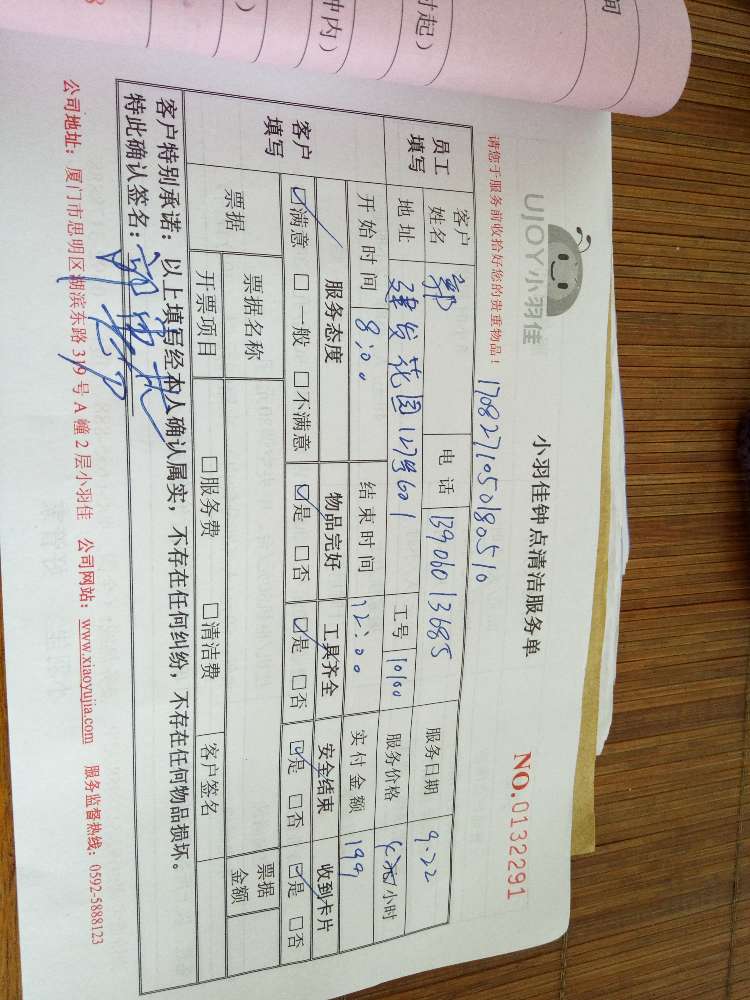 间
时起)
钟内)
)
UJOY小羽佳
小羽佳钟点清洁服务单
NO.0132291
请您于服务前收拾好您的贵重物品!
1708271050180510
员工填写
客户姓名 郭 电话 13906013685 服务日期 9.22
地址 建发花园127号601 工号 10100 服务价格 元/小时
开始时间 8:00 结束时间 12:00 实付金额 199
客户填写
服务态度 物品完好 工具齐全 安全结束 收到卡片
☑满意 □一般 □不满意 ☑是 □否 ☑是 □否 ☑是 □否 ☑是 □否
票据 票据名称 票据金额
开票项目 □服务费 □清洁费 客户签名
客户特别承诺:以上填写经本人确认属实,不存在任何纠纷,不存在任何物品损坏。
特此确认签名:
公司地址:厦门市思明区湖滨东路319号A幢2层小羽佳 公司网站:www.xiaoyujia.com 服务监督热线:0592-5888123